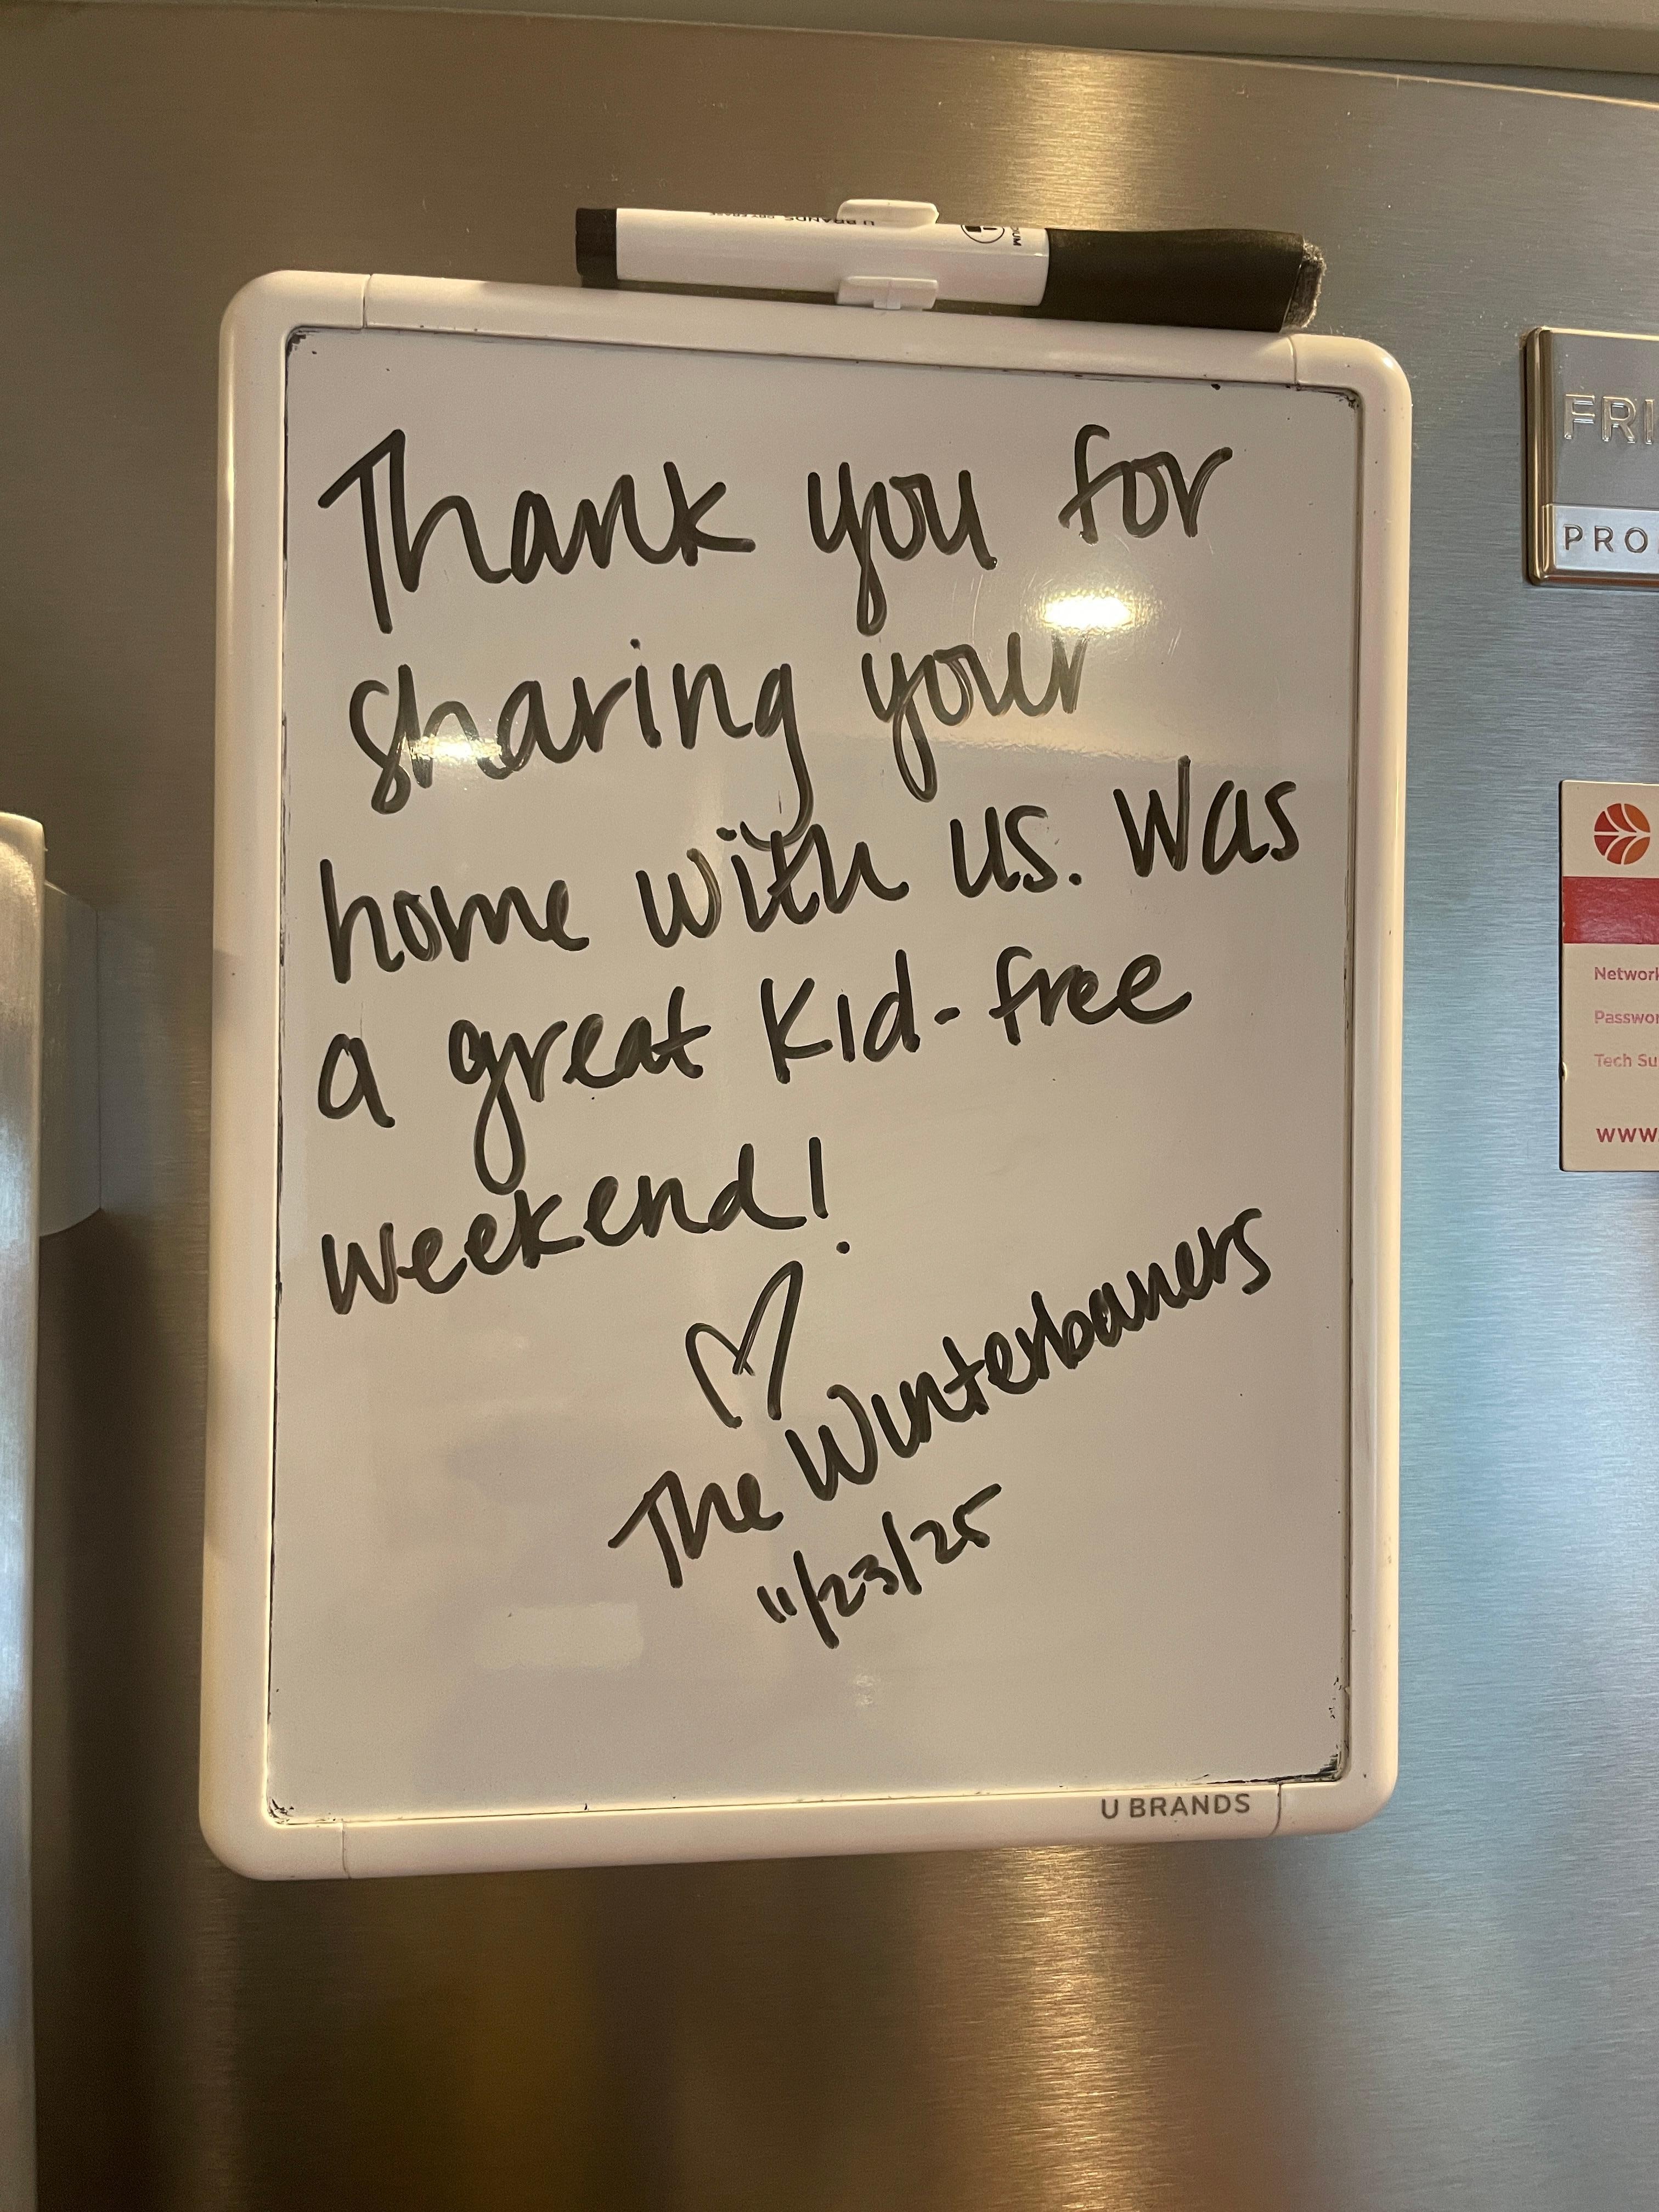 U BRANDS DRY ERASE
Thank you for
sharing your
home with us. Was
a great kid-free
weekend!
The Winterbauers
11/23/25
U BRANDS
FRI
PRO
Network
Passwor
Tech Su
www.